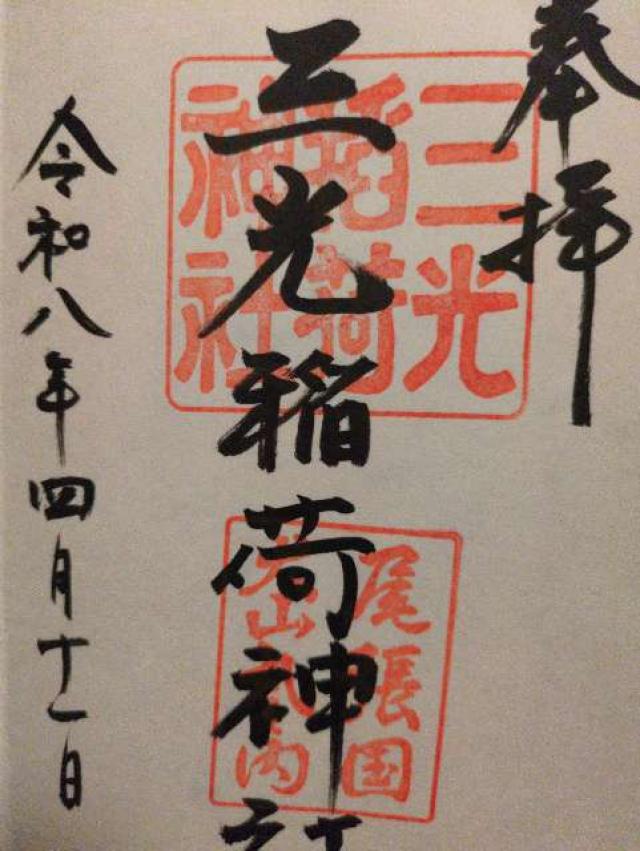 奉拝
三光稲荷神社
三光
稲荷
神社
尾張国
犬山城内
令和八年四月十一日